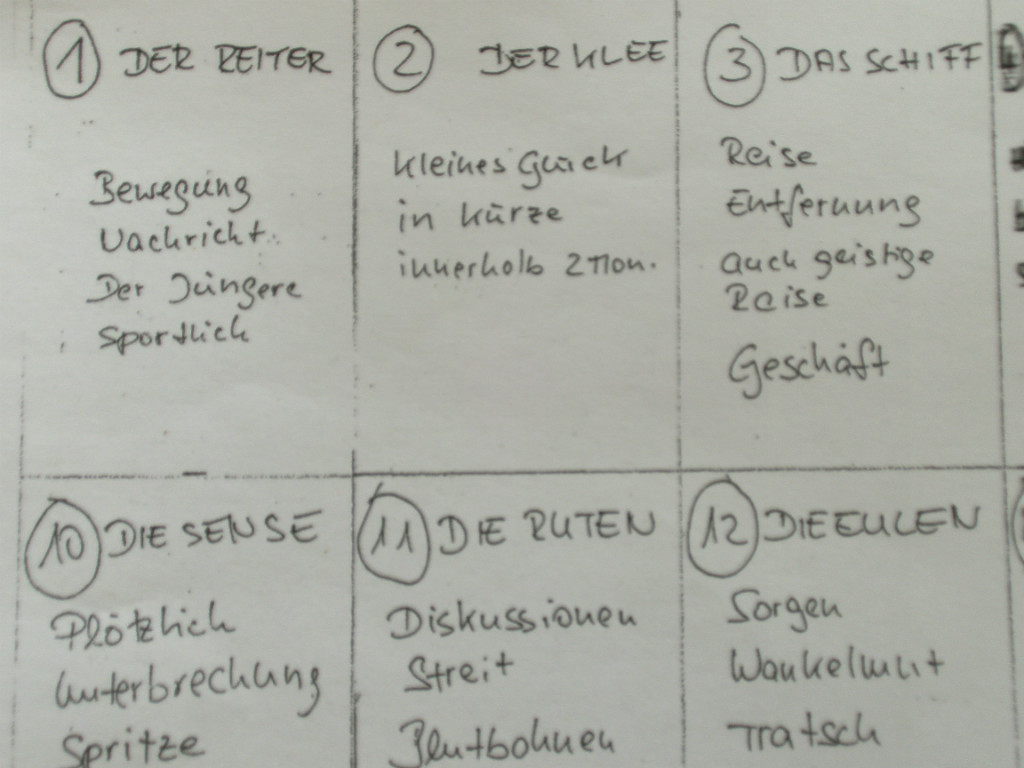 1 DER REITER
Bewegung
Nachricht.
Der Jüngere
sportlich
2 DER KLEE
kleines Glück
in kürze
innerhalb 2 Mon.
3 DAS SCHIFF
Reise
Entfernung
auch geistige
Reise
Geschäft
10 DIE SENSE
Plötzlich
Unterbrechung
Spritze
11 DIE RUTEN
Diskussionen
Streit
12 DIE EULEN
Sorgen
Wankelmut
Tratsch